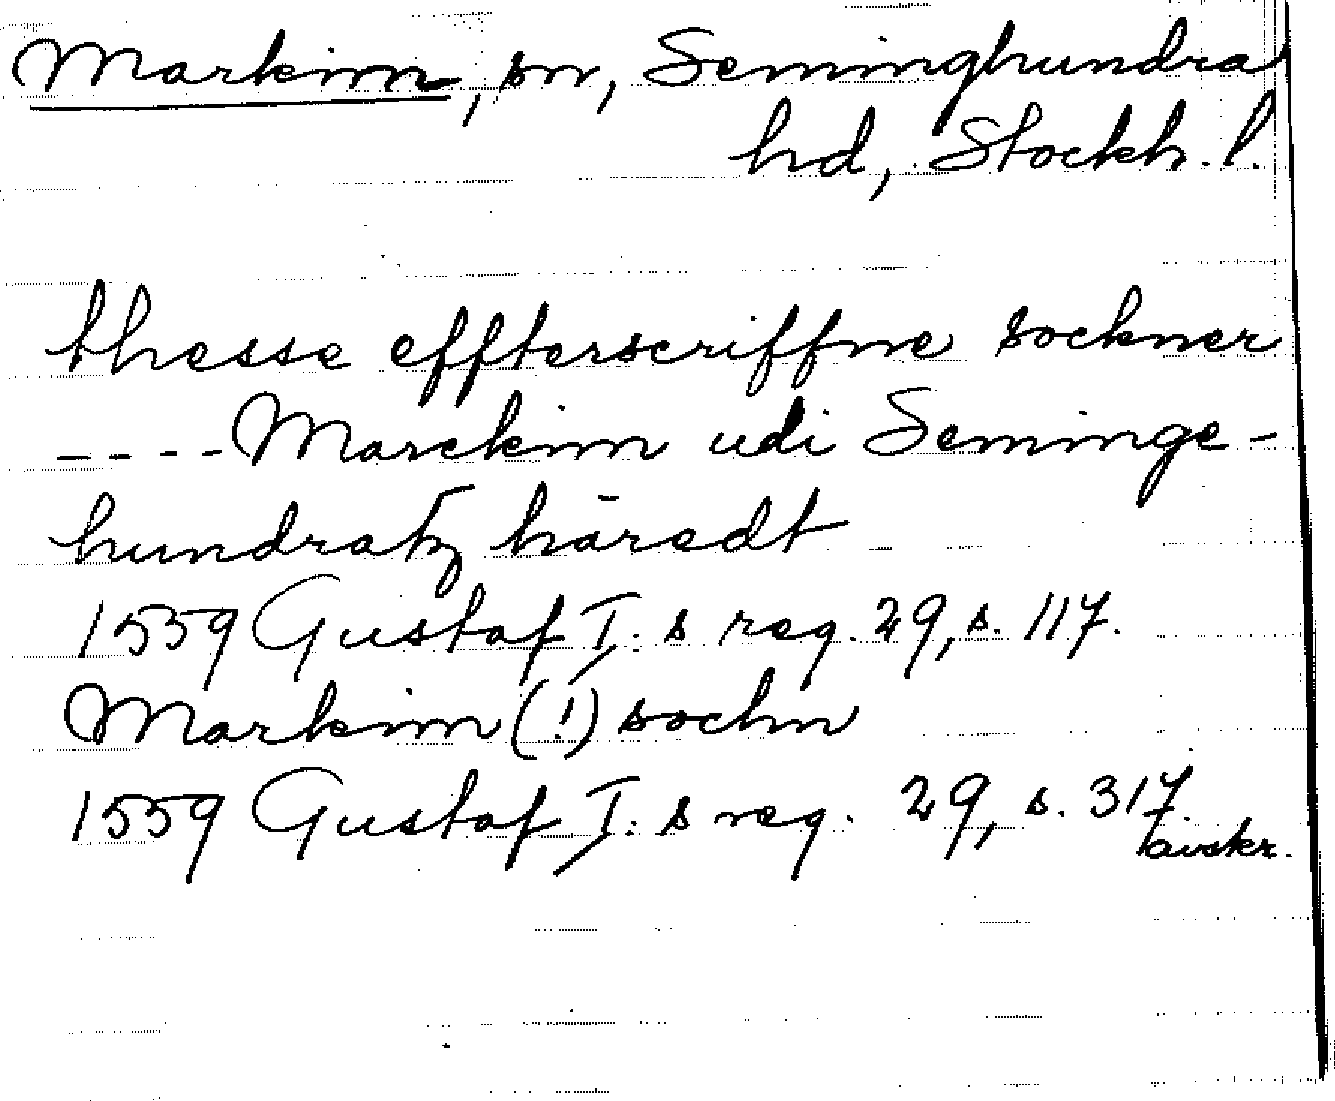 Markim, sn, Seminghundra
hd, Stockh. l.
thesse effterscriffne sockner
---- Marckim udi Seminge-
hundratz häredt
1559 Gustaf I:s reg. 29, s. 117.
Markim (!) sochn
1559 Gustaf I:s reg. 29, s. 317.
avskr.